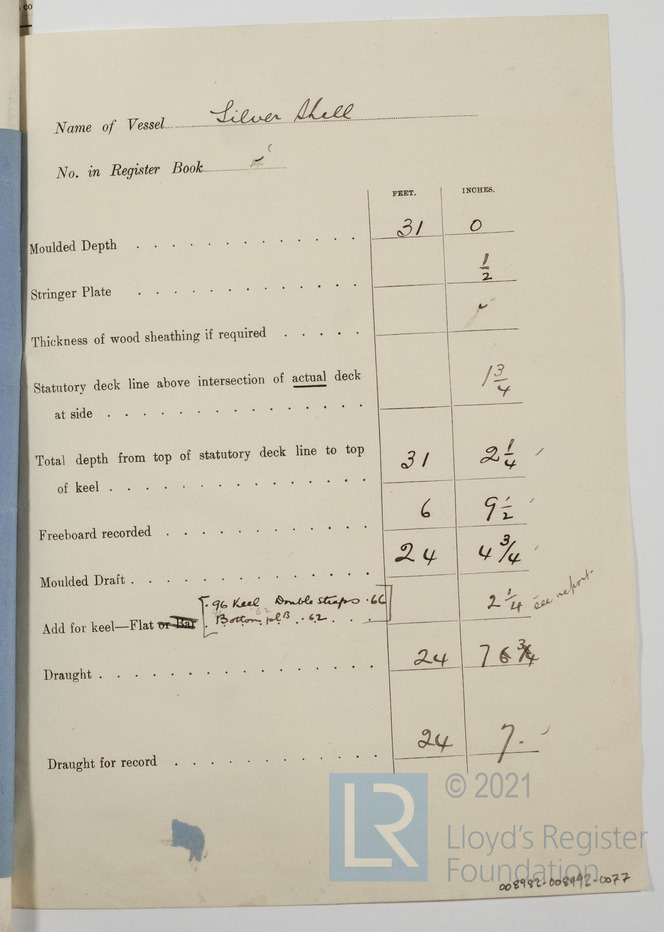 co
Name of Vessel Silver Shell
No. in Register Book
FEET. INCHES.
Moulded Depth . . . . . . . . . . . . 31 0
Stringer Plate . . . . . . . . . . . . 1/2
Thickness of wood sheathing if required . . . . .
Statutory deck line above intersection of actual deck 1 3/4
at side . . . . . . . . . . . . . .
Total depth from top of statutory deck line to top
of keel . . . . . . . . . . . . . . 31 2 1/4
Freeboard recorded . . . . . . . . . . . 6 9 1/2
Moulded Draft . . . . . . . . . . . . 24 4 3/4
.96 Keel Double Straps .66
Add for keel—Flat or Bar Bottom pl .62 . . 2 1/4 see report.
Draught . . . . . . . . . . . . . . 24 7 6 3/4
Draught for record . . . . . . . . . . 24 7.
© 2021
LR
Lloyd's Register
Foundation
008982-008992-0077